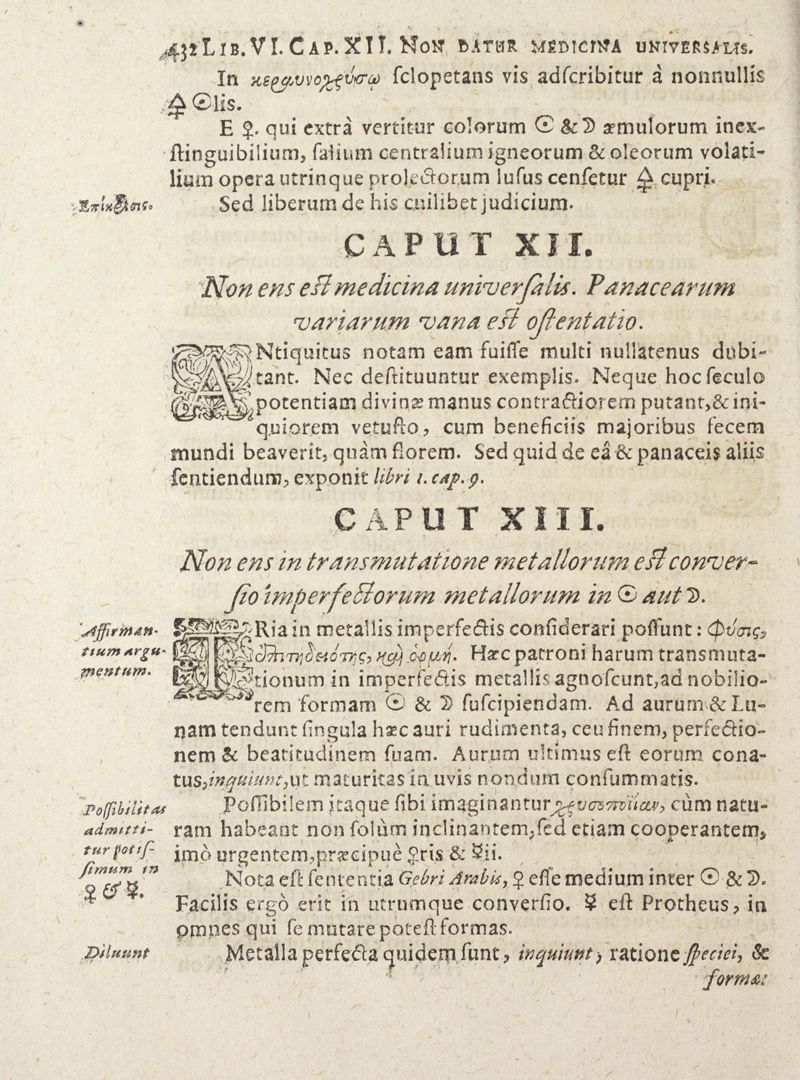 432 LIB. VI. CAP. XII. NON DATUR MEDICINA UNIVERSALIS.
In κεραυνοχρύσῳ ſclopetans vis adſcribitur à nonnullis
🜍 ☉lis.
E ♀. qui extrà vertitur colorum ☉ & ☽ æmulorum inex-
ſtinguibilium, ſalium centralium igneorum & oleorum volati-
lium opera utrinque prolectorum luſus cenſetur 🜍 cupri.
Sed liberum de his cuilibet judicium.
CAPUT XII.
Non ens eſt medicina univerſalis. Panacearum
variarum vana eſt oſtentatio.
ANtiquitus notam eam fuiſſe multi nullatenus dubi-
tant. Nec deſtituuntur exemplis. Neque hoc ſeculo
potentiam divinæ manus contractiorem putant, & ini-
quiorem vetuſto, cum beneficiis majoribus fecem
mundi beaverit, quàm florem. Sed quid de eâ & panaceis aliis
ſentiendum, exponit libri 1. cap. 9.
CAPUT XIII.
Non ens in transmutatione metallorum eſt conver-
ſio imperfectorum metallorum in ☉ aut ☽.
Affirman-
tium argu-
mentum.
TRia in metallis imperfectis conſiderari poſſunt: Φύσις,
ἐπιτηδειότης, καὶ ὁρμή. Hæc patroni harum transmuta-
tionum in imperfectis metallis agnoſcunt, ad nobilio-
rem formam ☉ & ☽ ſuſcipiendam. Ad aurum & Lu-
nam tendunt ſingula hæc auri rudimenta, ceu finem, perfectio-
nem & beatitudinem ſuam. Aurum ultimus eſt eorum cona-
tus, inquiunt, ut maturitas in uvis nondum conſummatis.
Poſſibilitas
admitti-
tur potiſ-
ſimum in
♀ & ☿.
Poſſibilem itaque ſibi imaginantur χρυσοποιίαν, cùm natu-
ram habeant non ſolùm inclinantem, ſed etiam cooperantem,
imò urgentem, præcipuè ♀ris & ☿ii.
Nota eſt ſententia Gebri Arabis, ♀ eſſe medium inter ☉ & ☽.
Facilis ergò erit in utrumque converſio. ☿ eſt Protheus, in
omnes qui ſe mutare poteſt formas.
Diluunt
Metalla perfecta quidem ſunt, inquiunt, ratione ſpeciei, &
formæ: